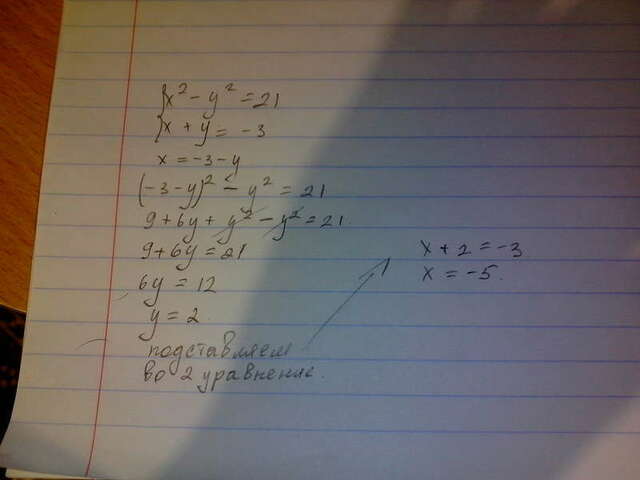 x² - y² = 21
x + y = -3
x = -3 - y
(-3 - y)² - y² = 21
9 + 6y + y² - y² = 21
9 + 6y = 21
6y = 12
y = 2
подставляем
во 2 уравнение.
x + 2 = -3
x = -5.